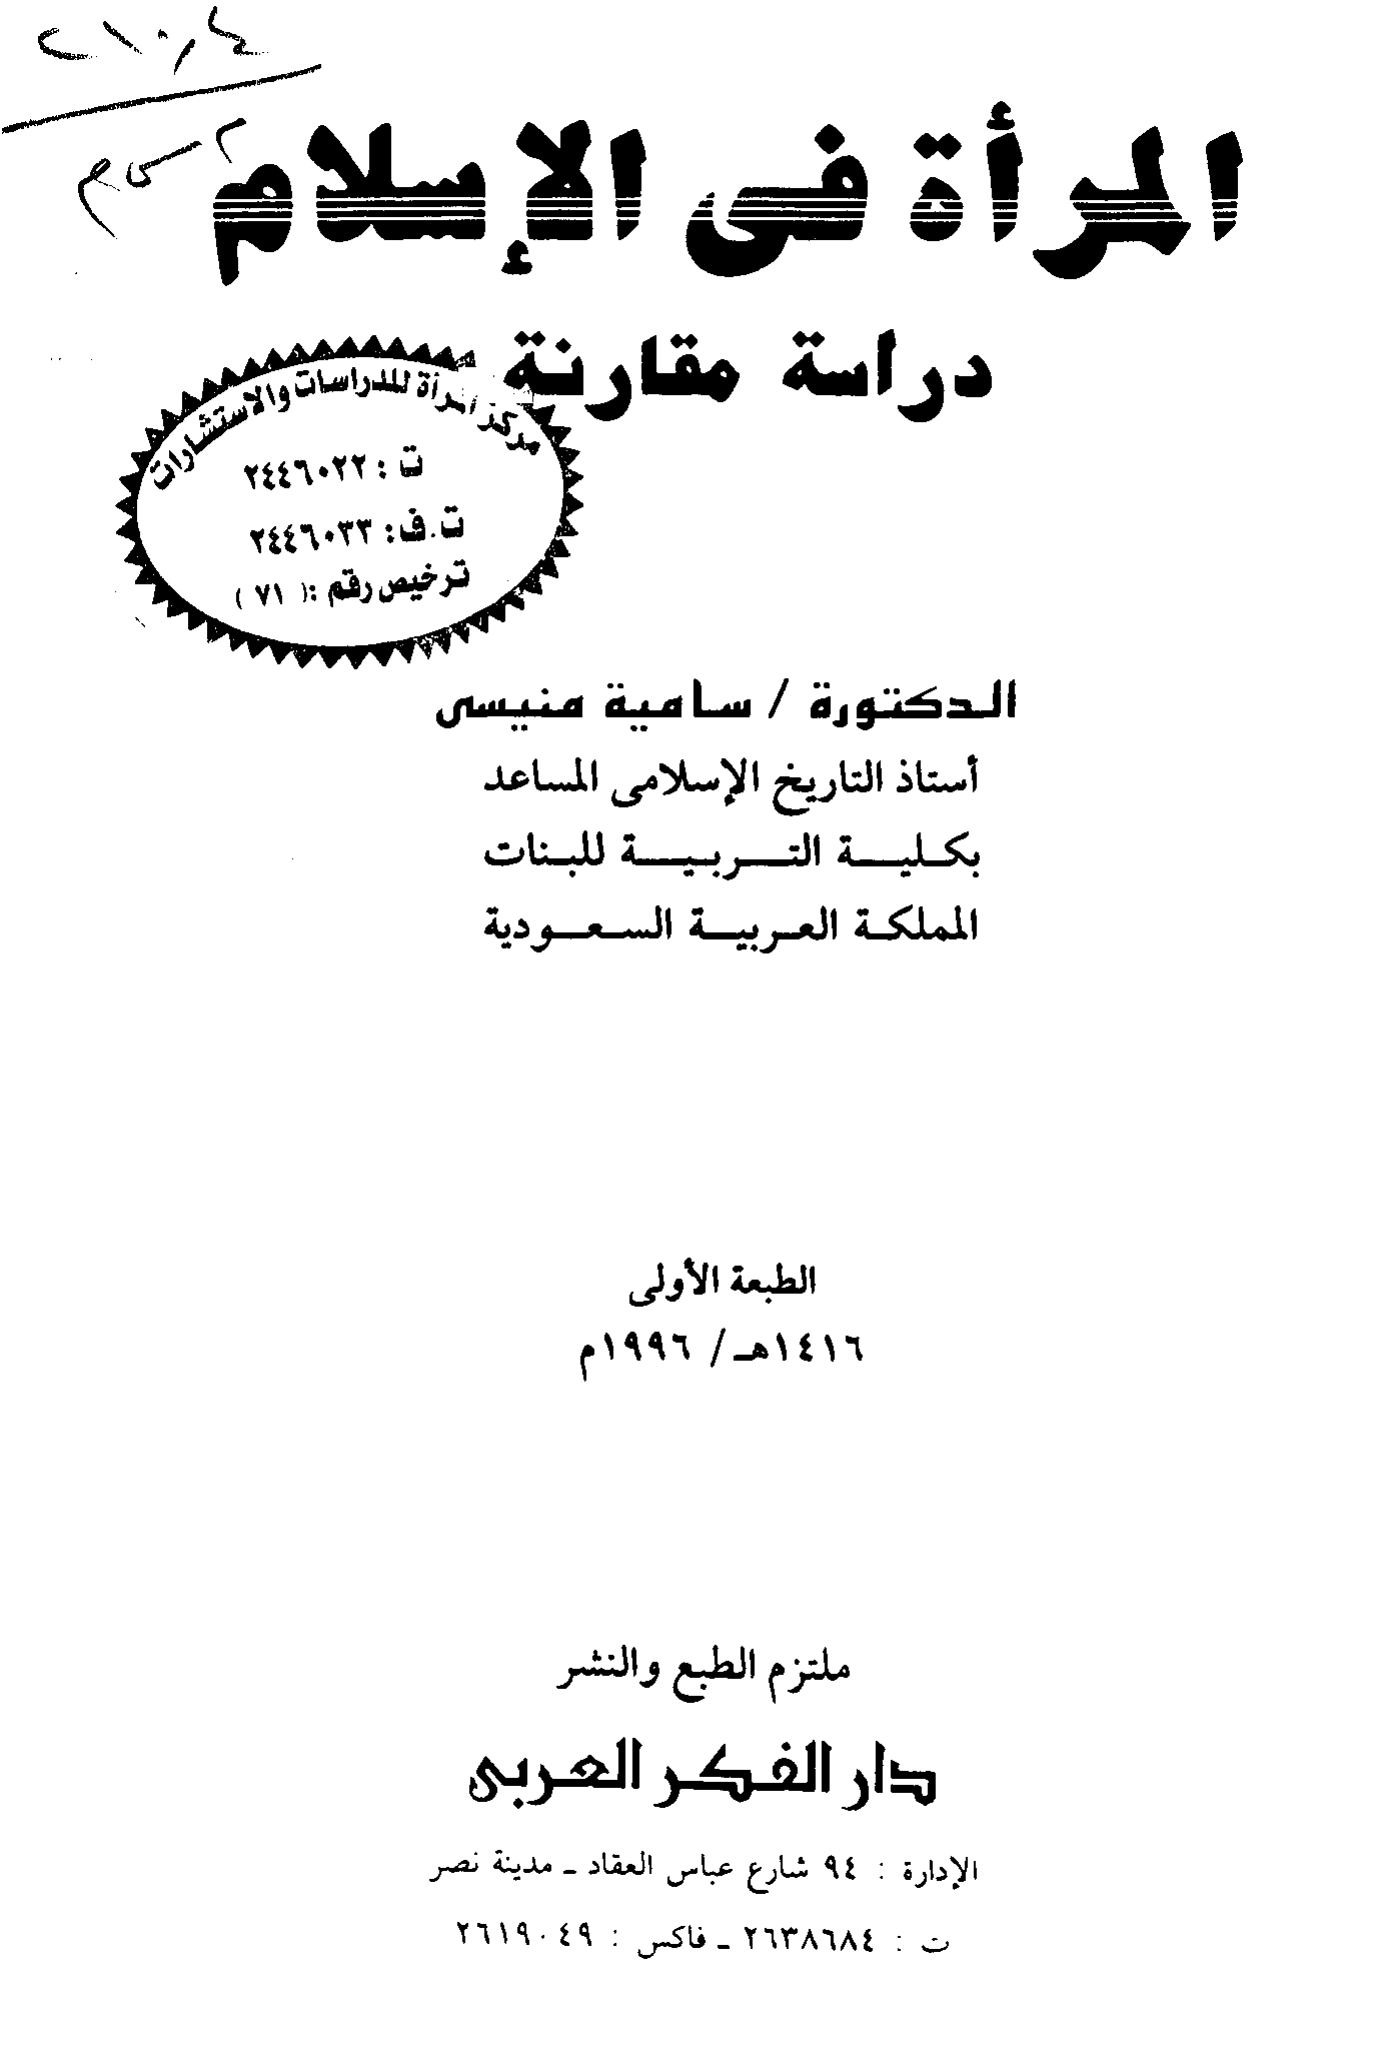 ٢١٠٫٤
م س م
المرأة فى الإسلام
دراسة مقارنة
مركز المرأة للدراسات والاستشارات
ت : ٢٤٤٦٠٢٢
ت.ف: ٢٤٤٦٠٣٣
ترخيص رقم :( ٧١ )
الدكتورة / سامية منيسى
أستاذ التاريخ الإسلامى المساعد
بكلية التربية للبنات
المملكة العربية السعودية
الطبعة الأولى
١٤١٦هـ / ١٩٩٦م
ملتزم الطبع والنشر
دار الفكر العربى
الإدارة : ٩٤ شارع عباس العقاد ـ مدينة نصر
ت : ٢٦٣٨٦٨٤ ـ فاكس : ٢٦١٩٠٤٩